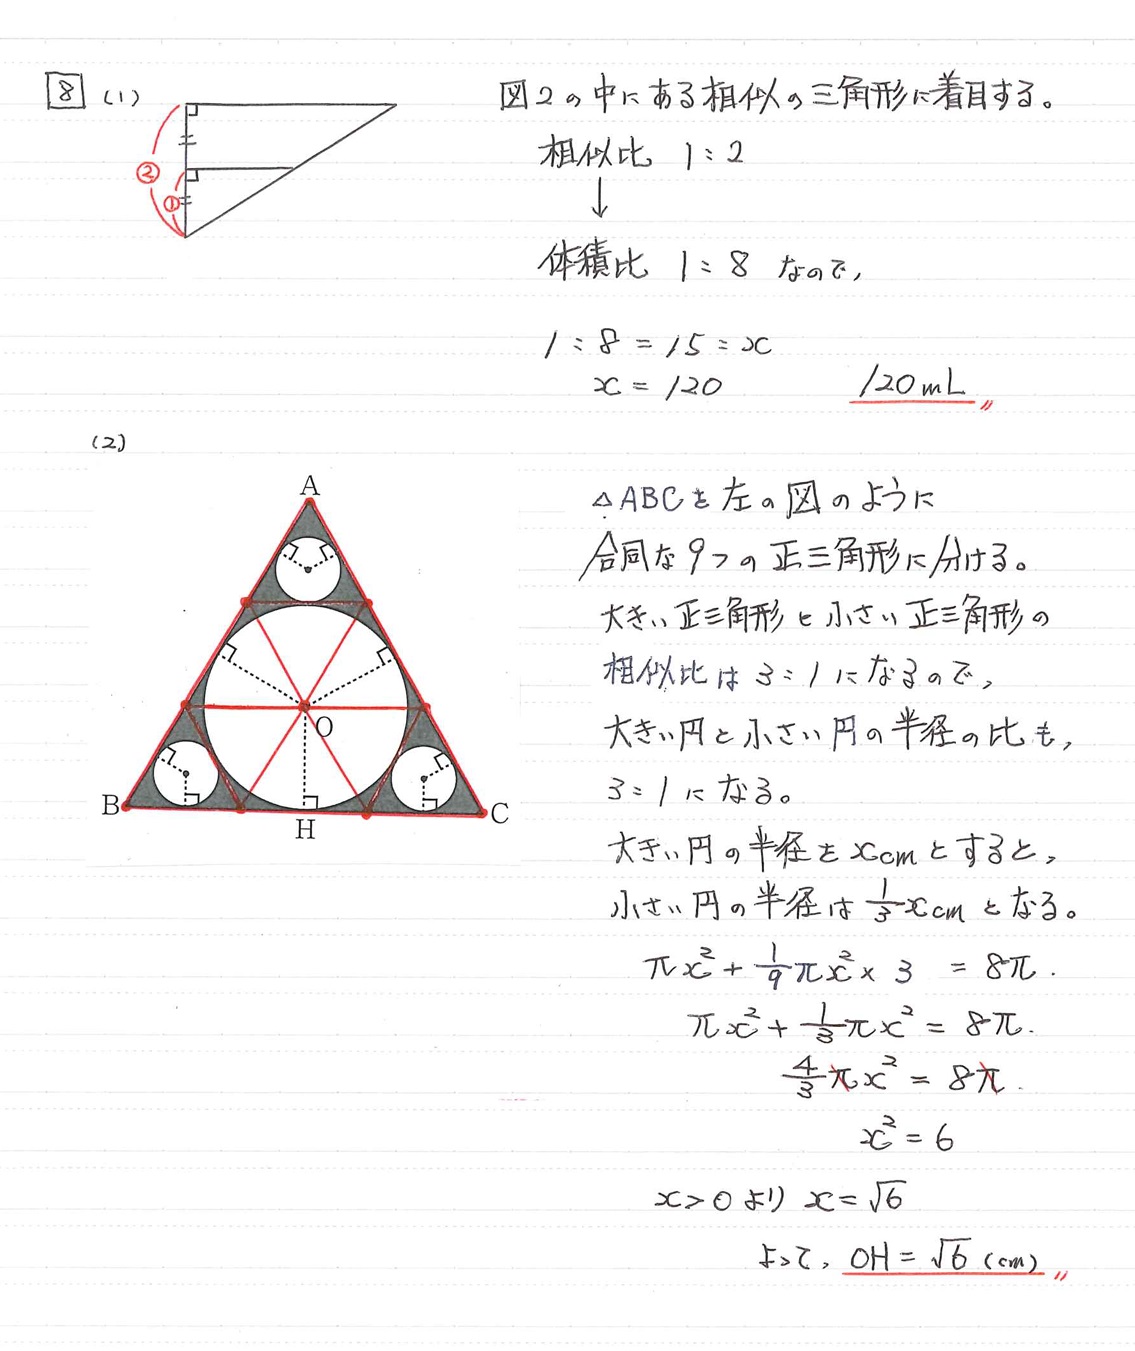 8 (1)
② ①
図2の中にある相似の三角形に着目する。
相似比 1:2
↓
体積比 1:8 なので,
1:8=15:x
x=120 120mL〃
(2)
A
O
B
H
C
△ABCを左の図のように
合同な9つの正三角形に分ける。
大きい正三角形と小さい正三角形の
相似比は3:1になるので,
大きい円と小さい円の半径の比も,
3:1になる。
大きい円の半径をxcmとすると,
小さい円の半径は1/3xcmとなる。
πx²+1/9πx²×3 =8π.
πx²+1/3πx²=8π.
4/3πx²=8π.
x²=6
x>0より x=√6
よって, OH=√6(cm)〃